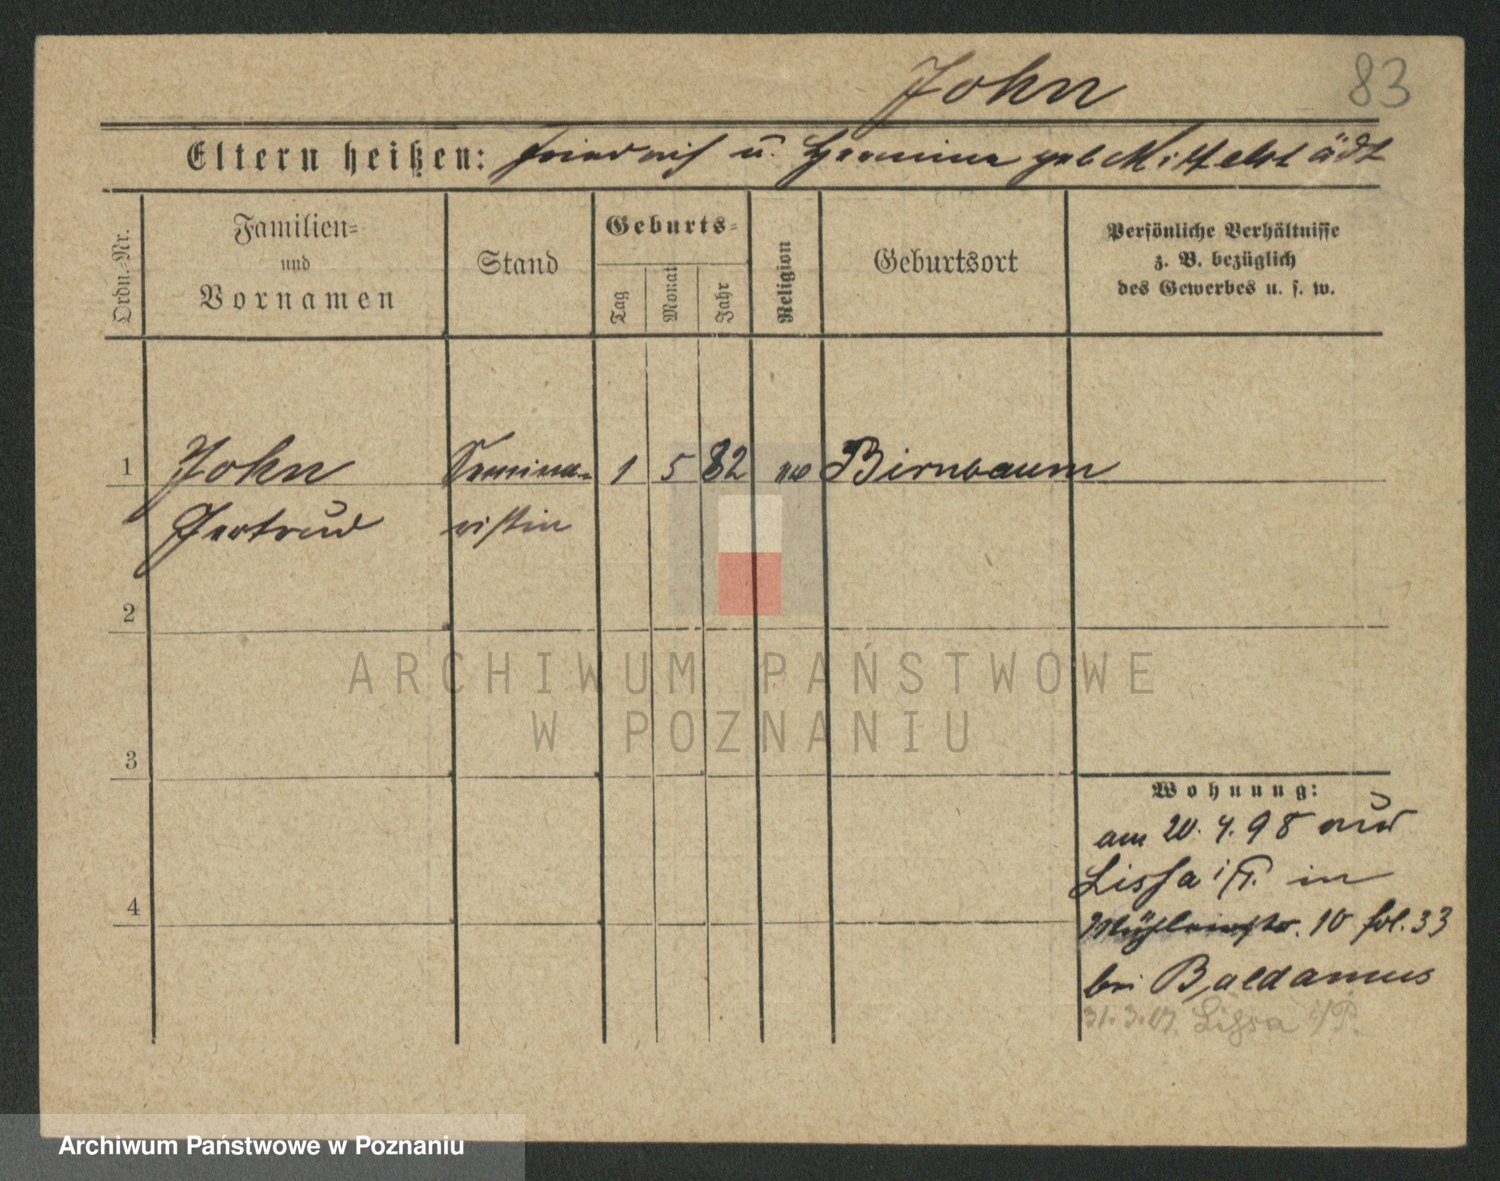 John 83
Eltern heißen: Friedrich u. Hermine geb Mittelstädt
Ordn.-Nr.
Familien-
und
Vornamen
Stand
Geburts-
Tag
Monat
Jahr
Religion
Geburtsort
Persönliche Verhältnisse
z. B. bezüglich
des Gewerbes u. s. w.
1 John Semina- 1 5 82 Birnbaum
Gertrud ristin
2
3
4
Wohnung:
am 20. 4. 98 aus
Lissa i/P. in
10 fol. 33
bei Baldamus
31. 3. Lissa i/P.
ARCHIWUM PAŃSTWOWE
W POZNANIU
Archiwum Państwowe w Poznaniu